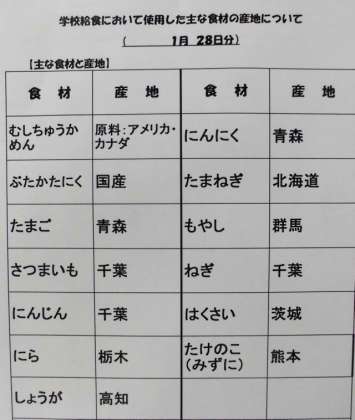 学校給食において使用した主な食材の産地について
( 1月 28日分)
【主な食材と産地】
食 材 産 地 食 材 産 地
むしちゅうかめん 原料:アメリカ・カナダ にんにく 青森
ぶたかたにく 国産 たまねぎ 北海道
たまご 青森 もやし 群馬
さつまいも 千葉 ねぎ 千葉
にんじん 千葉 はくさい 茨城
にら 栃木 たけのこ(みずに) 熊本
しょうが 高知